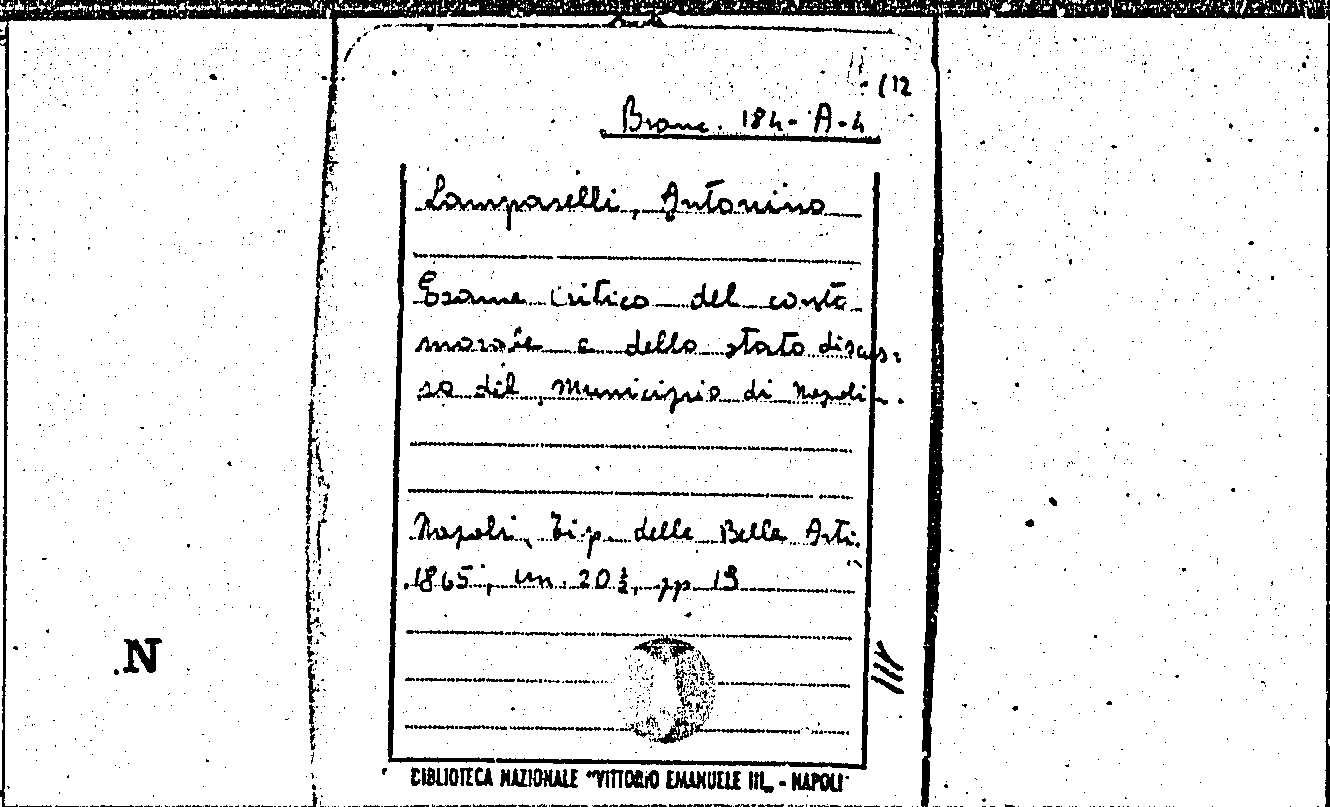 (12
Branc. 184-A-4
Lamparelli, Antonino
Esame critico del conto
morale e dello stato discus-
so del Municipio di Napoli.
Napoli, Tip. delle Belle Arti.
1865, cm. 20½, pp 19
N
BIBLIOTECA NAZIONALE "VITTORIO EMANUELE III„ - NAPOLI